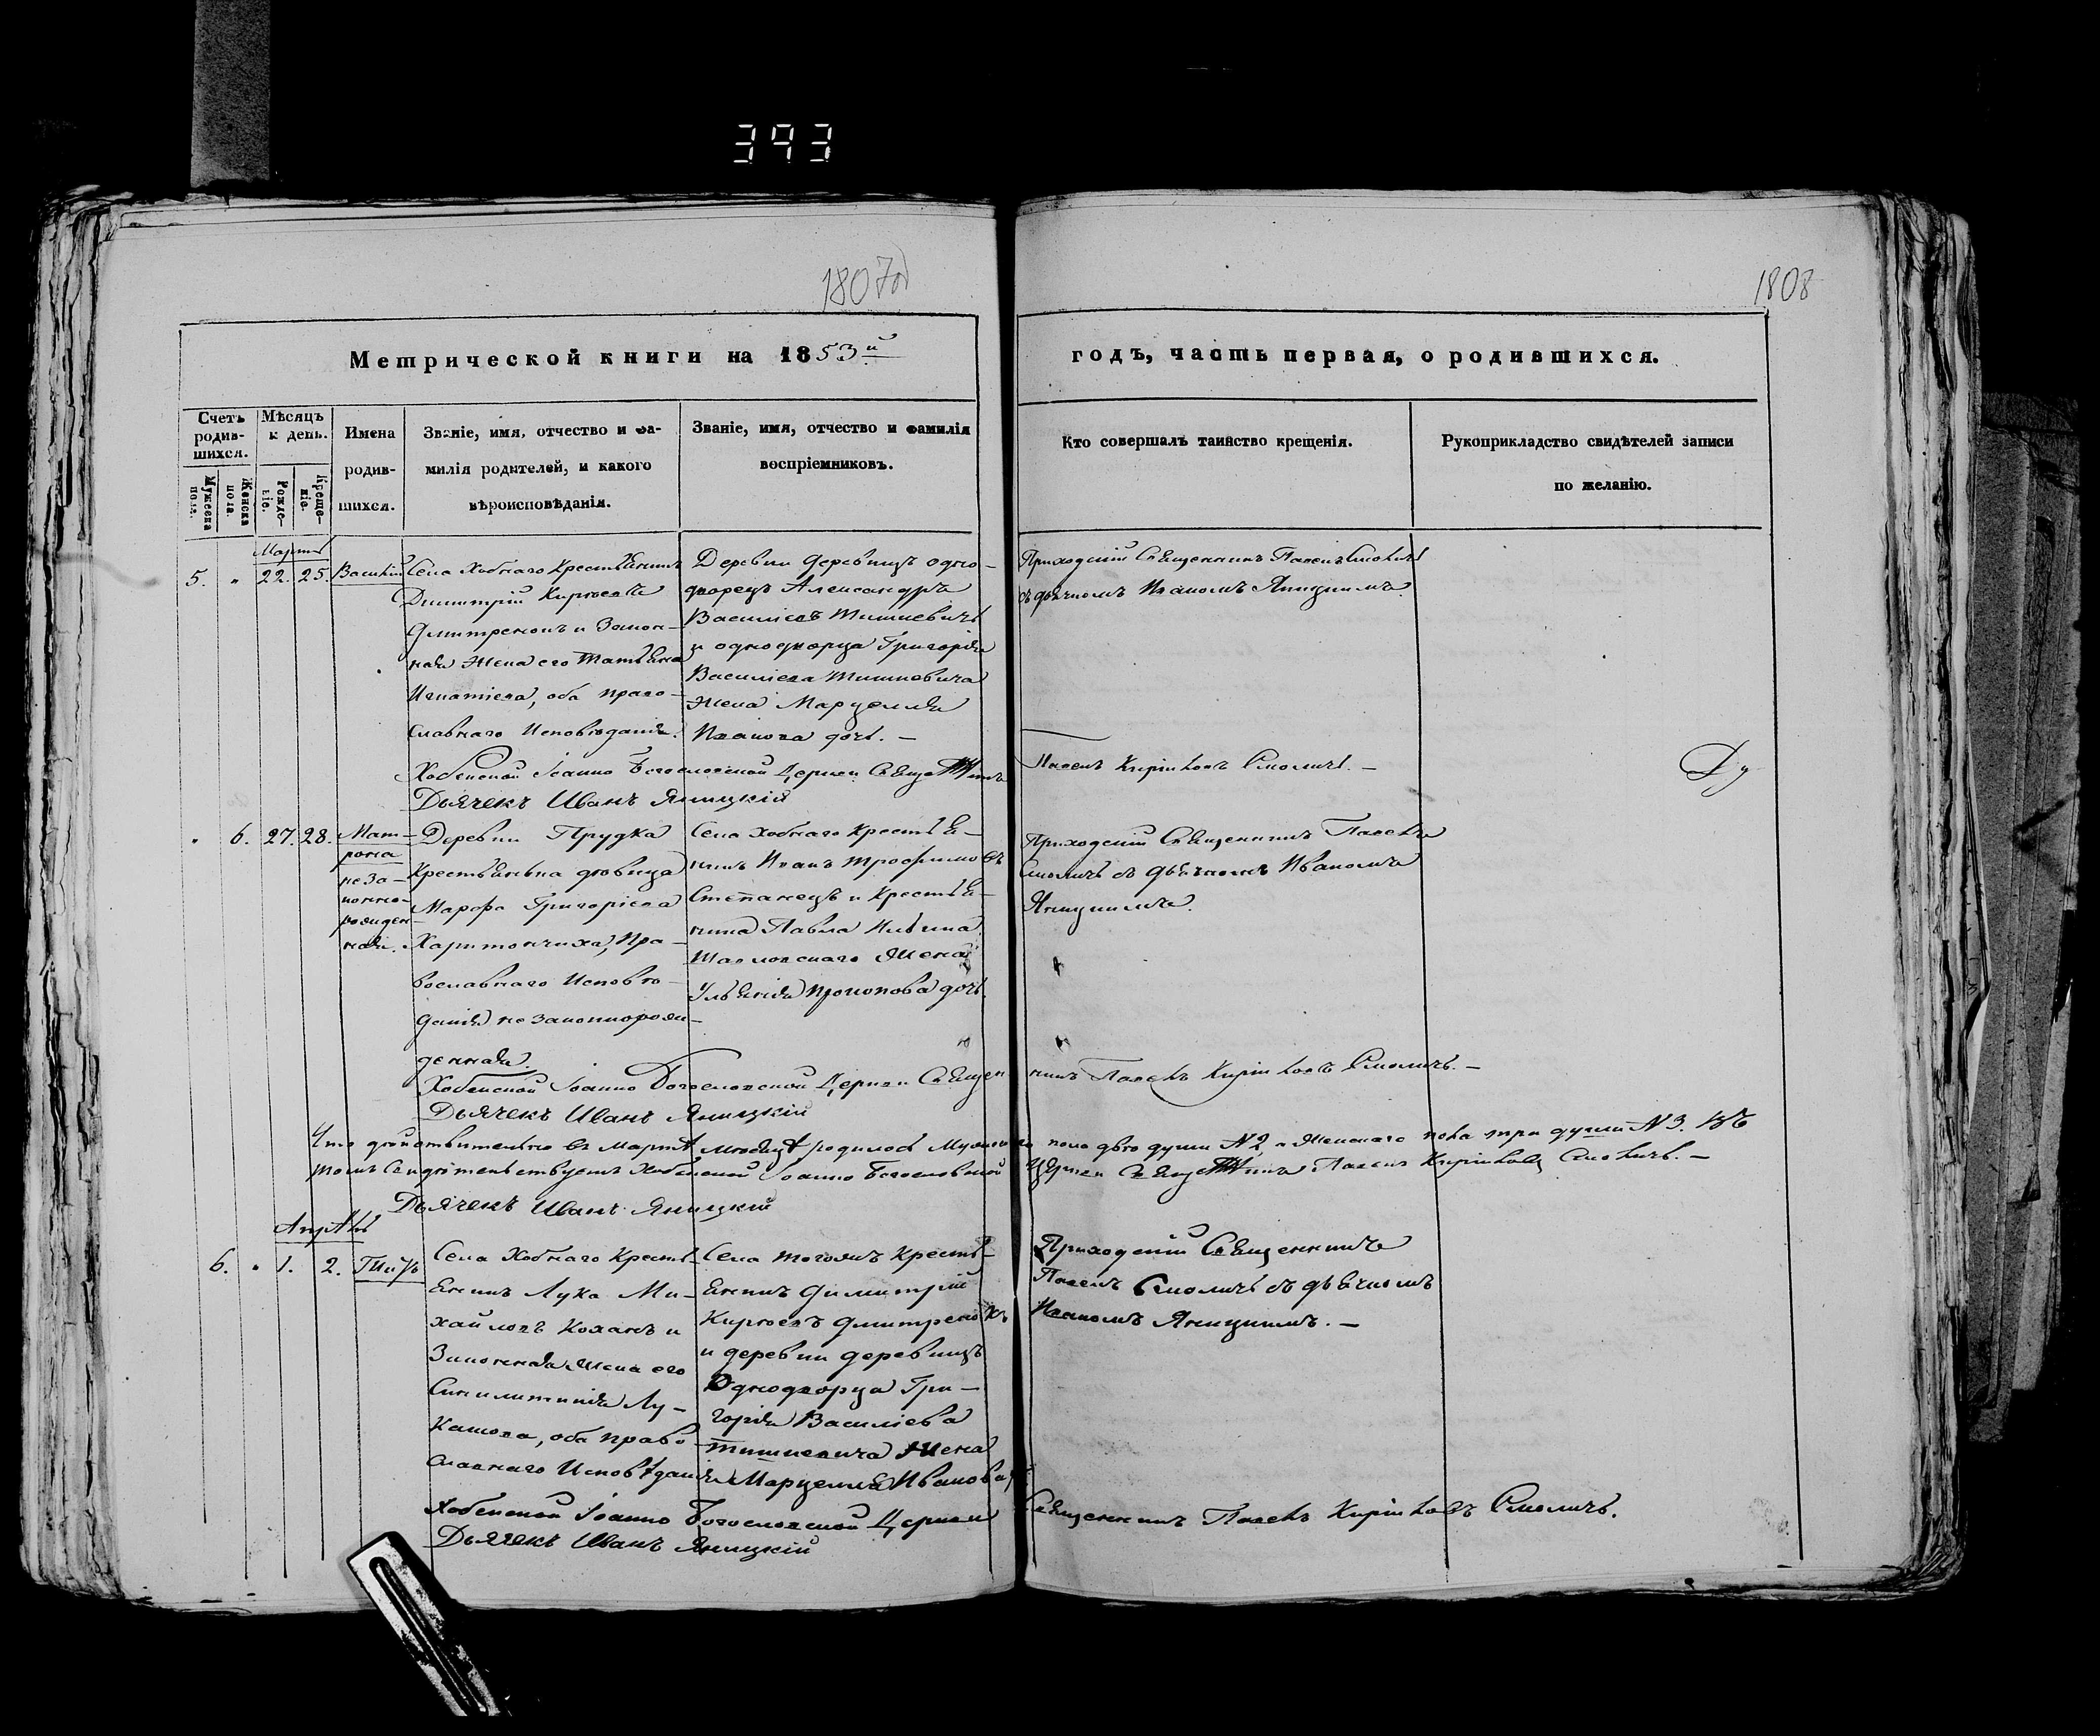 393
1807об
1808
Метрической книги на 1853й
годъ, часть первая, о родившихся.
Счетъ родив-шихся.
Мужеска пола.
Женска пола.
Мѣсяцъ и день.
Рожде-ніе.
Креще-ніе.
Имена
родив-
шихся.
Званіе, имя, отчество и фа-
милія родителей, и какого
вѣроисповѣданія.
Званіе, имя, отчество и фамилія
воспріемниковъ.
Кто совершалъ таинство крещенія.
Рукоприкладство свидѣтелей записи
по желанію.
Мартъ
5. " 22. 25. Василій
Села Хобнаго Крестьянинъ
Димитрій Кирѣевъ
Дмитренокъ и Закон-
ная жена его Татьяна
Игнатіева, оба право-
славнаго Исповѣданія.
Деревни Деревищъ одно-
дворецъ Александръ
Василіевъ Тишкевичъ
и однодворца Григорія
Василіева Тишкевича
жена Марцелля
Иванова дочь. —
Приходскій Священникъ Павелъ Смоличъ
съ дьячкомъ Иваномъ Яницкимъ.
Хобенской Іоанно Богословской Церкви Священникъ
Павелъ Кириловъ Смоличъ. —
Дьячекъ Иванъ Яницкій
" 6. 27. 28.
Мат-
рона
неза-
конно-
рожден-
ная.
Деревни Прудка
Крестьянка вдовица
Марфа Григоріева
Харитончиха, Пра-
вославнаго Исповѣ-
данія незаконнорож-
денная.
Села Хобнаго Крестья-
нинъ Иванъ Трофимовъ
Степанецъ и Крестья-
нина Павла
жена
Ульянія Прокопова дочь.
Приходскій Священникъ Павелъ
Смоличъ съ дьячкомъ Иваномъ
Яницкимъ.
Хобенской Іоанно Богословской Церкви Священ-
никъ Павелъ Кириловъ Смоличъ. —
Дьячекъ Иванъ Яницкій
Что дѣйствительно въ Мартѣ мѣсяцѣ родилось Мужескаго пола двѣ души № 2 и Женскаго пола три души № 3. Въ
томъ Свидѣтельствуетъ Хобенской Іоанно Богословской Церкви Священникъ Павелъ Кириловъ Смоличъ. —
Дьячекъ Иванъ Яницкій
Апрѣль
6. " 1. 2. Титъ
Села Хобнаго Кресть-
янинъ Лука Ми-
хайловъ Коханъ и
Законная жена его
Синклитикія Лу-
кашова, оба Право-
славнаго Исповѣданія
Села тогожъ Кресть-
янинъ Димитрій
Кирѣевъ Дмитренокъ
и деревни Деревищъ
Однодворца Гри-
горія Василіева
Тишкевича жена
Марцелля Иванова
Приходскій Священникъ
Павелъ Смоличъ съ дьячкомъ
Иваномъ Яницкимъ. —
Хобенской Іоанно Богословской Церкви
Священникъ Павелъ Кириловъ Смоличъ.
Дьячекъ Иванъ Яницкій